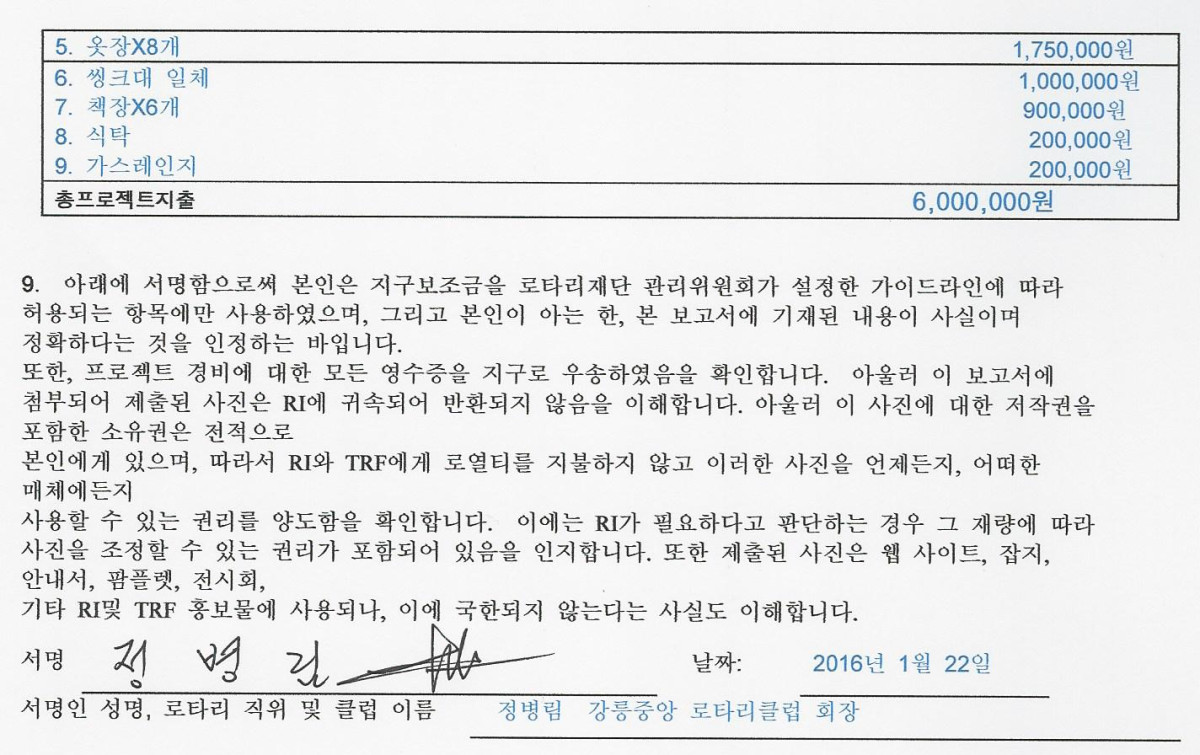 5. 옷장X8개 1,750,000원
6. 씽크대 일체 1,000,000원
7. 책장X6개 900,000원
8. 식탁 200,000원
9. 가스레인지 200,000원
총프로젝트지출 6,000,000원
9. 아래에 서명함으로써 본인은 지구보조금을 로타리재단 관리위원회가 설정한 가이드라인에 따라
허용되는 항목에만 사용하였으며, 그리고 본인이 아는 한, 본 보고서에 기재된 내용이 사실이며
정확하다는 것을 인정하는 바입니다.
또한, 프로젝트 경비에 대한 모든 영수증을 지구로 우송하였음을 확인합니다. 아울러 이 보고서에
첨부되어 제출된 사진은 RI에 귀속되어 반환되지 않음을 이해합니다. 아울러 이 사진에 대한 저작권을
포함한 소유권은 전적으로
본인에게 있으며, 따라서 RI와 TRF에게 로열티를 지불하지 않고 이러한 사진을 언제든지, 어떠한
매체에든지
사용할 수 있는 권리를 양도함을 확인합니다. 이에는 RI가 필요하다고 판단하는 경우 그 재량에 따라
사진을 조정할 수 있는 권리가 포함되어 있음을 인지합니다. 또한 제출된 사진은 웹 사이트, 잡지,
안내서, 팜플렛, 전시회,
기타 RI및 TRF 홍보물에 사용되나, 이에 국한되지 않는다는 사실도 이해합니다.
서명 정병림 날짜: 2016년 1월 22일
서명인 성명, 로타리 직위 및 클럽 이름 정병림 강릉중앙 로타리클럽 회장